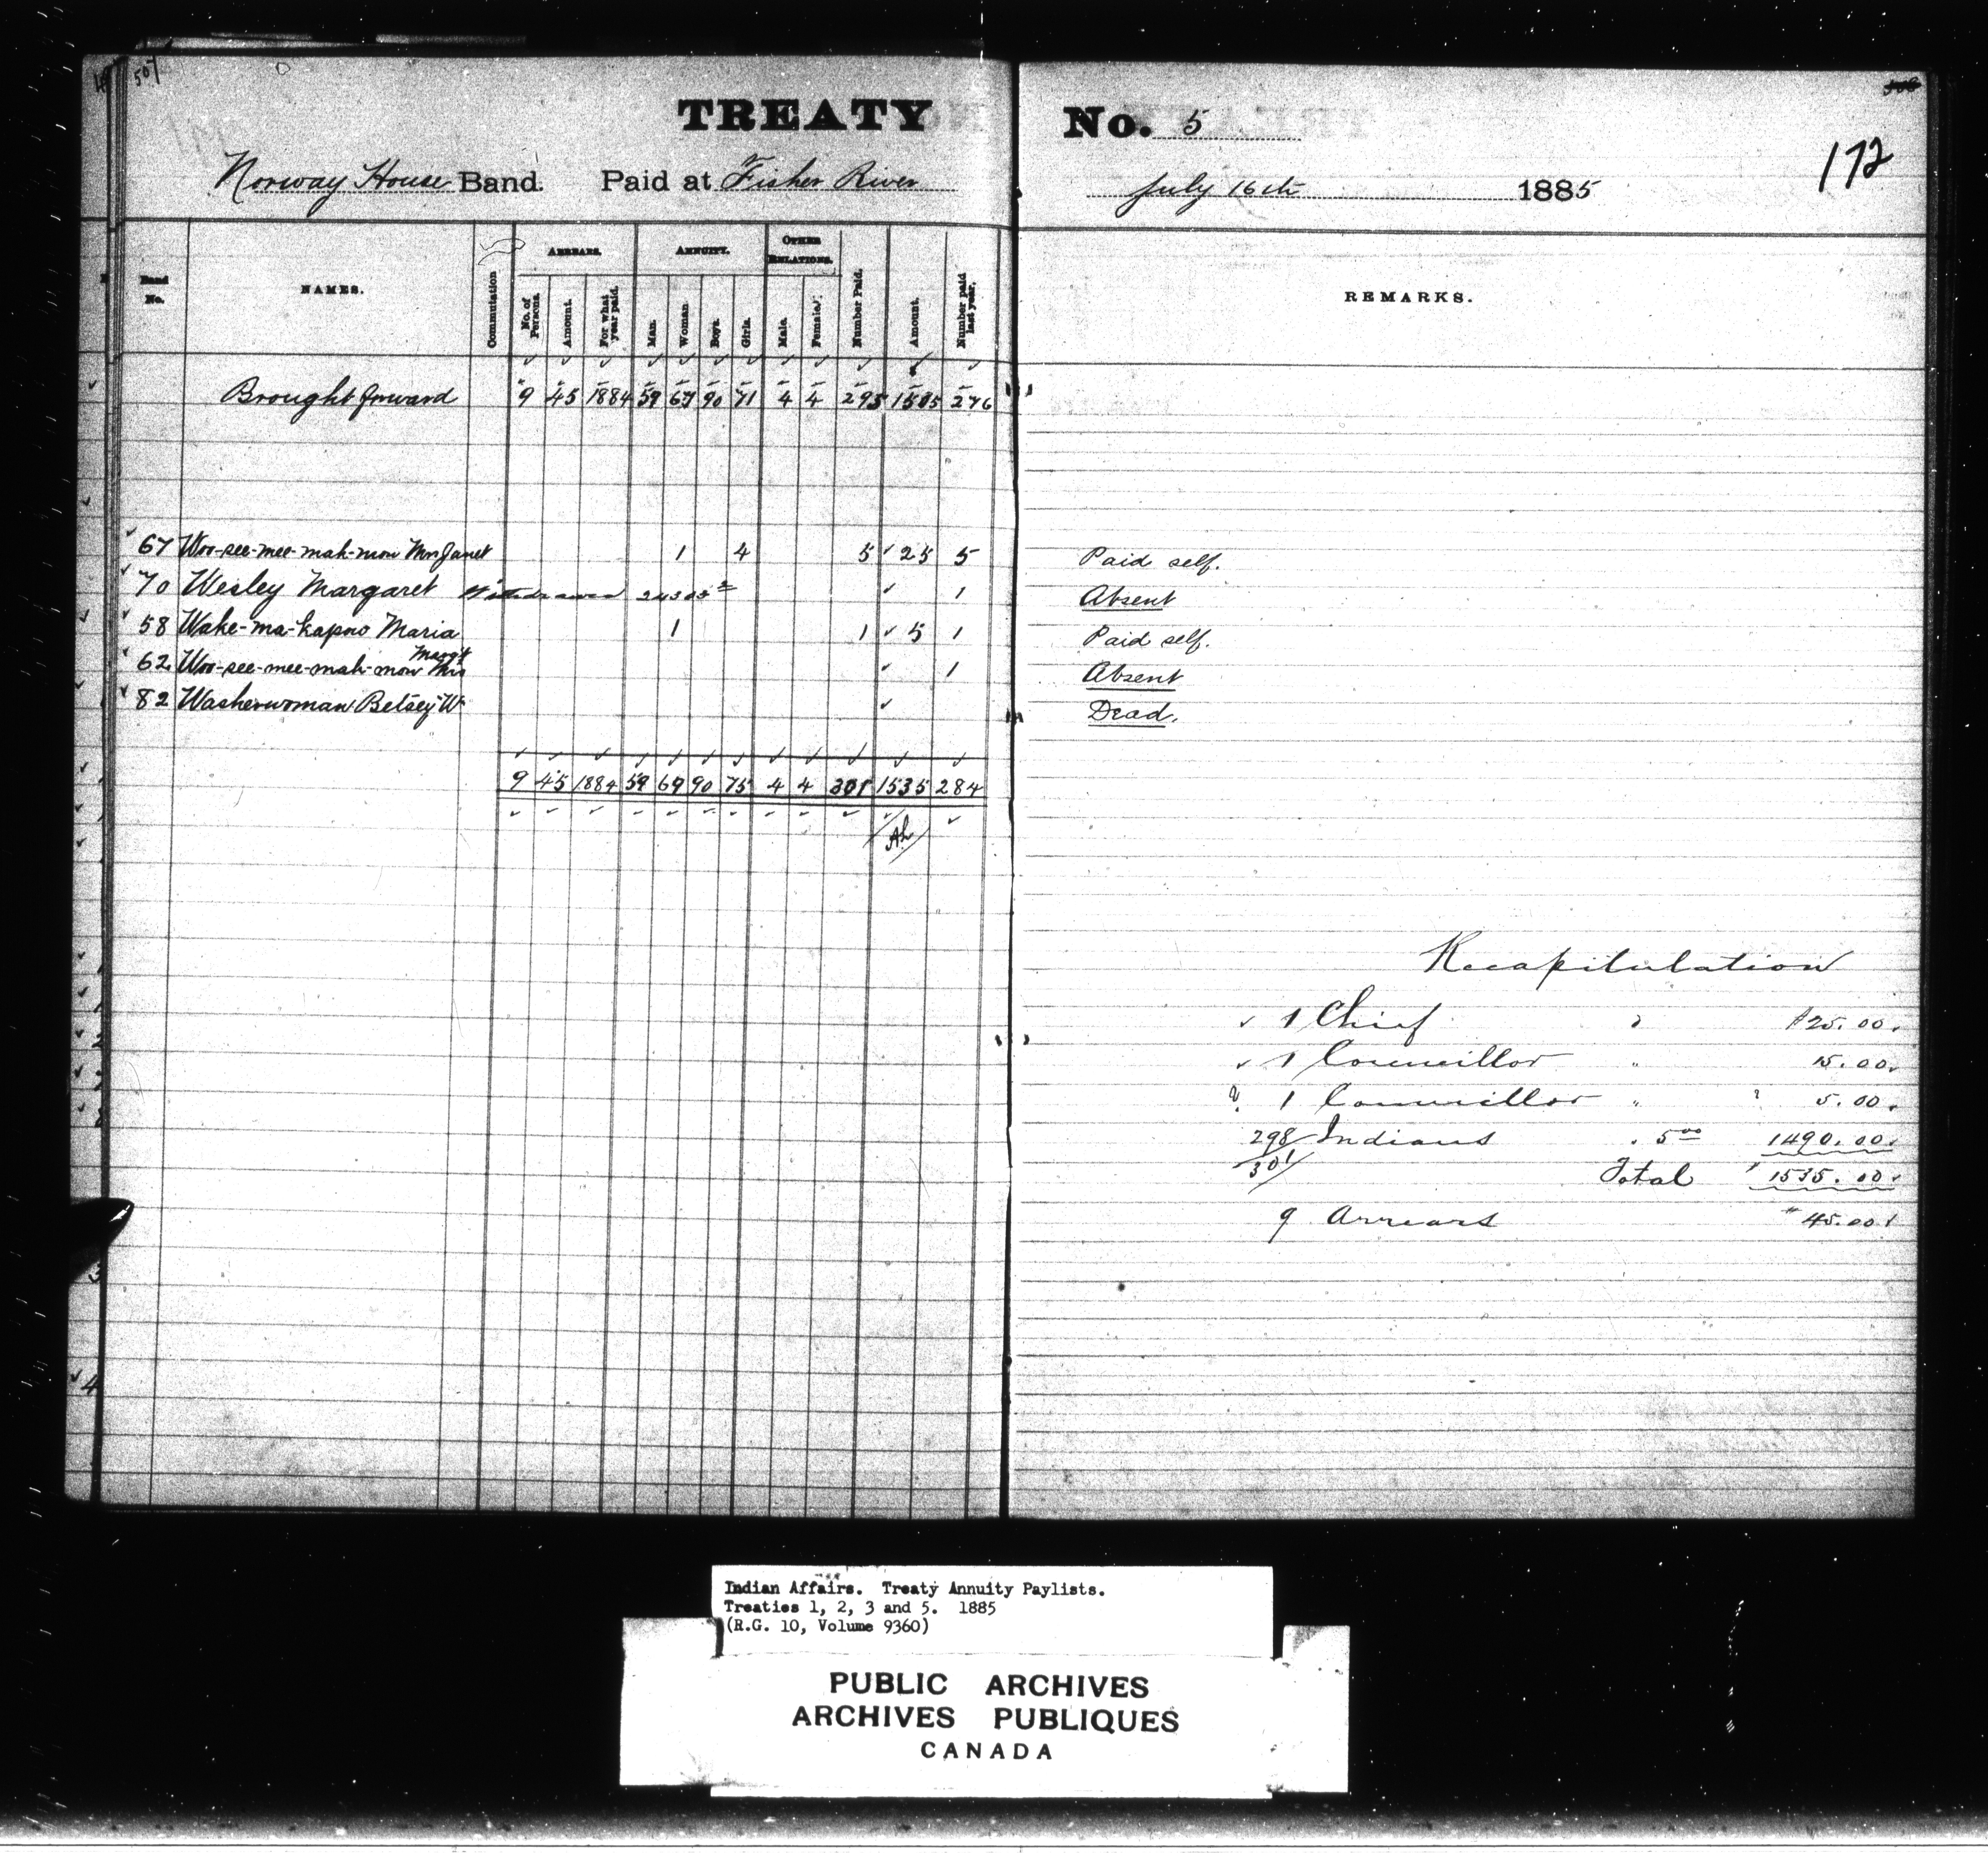 507
TREATY No. 5
172
Norway House Band. Paid at Fisher River July 16th 1885
Band No. NAMES. Commutation ARREARS. ANNUITY. OTHER RELATIONS. Number Paid. Amount. Number paid last year, REMARKS.
No. of Persons. Amount. For what year paid. Man. Woman Boys. Girls. Male. Female.
Brought forward 9 45 1884 59 67 90 71 4 4 295 1505 276
67 Woo-see-mee-mah-mow Mrs Janet 1 4 5 25 5 Paid self.
70 Wesley Margaret Withdrawn 1 Absent
58 Wake-ma-kapow Maria 1 1 5 1 Paid self.
62 Woo-see-mee-mah-mow Margt Mrs 1 Absent
82 Washerwoman Betsey W Dead.
9 45 1884 59 69 90 75 4 4 301 1535 284
Recapitulation
1 Chief $25.00
1 Councillor " 15.00
1 Councillor " 5.00
298 Indians 5.00 1490.00
301 Total 1535.00
9 Arrears 45.00
Indian Affairs. Treaty Annuity Paylists.
Treaties 1, 2, 3 and 5. 1885
(R.G. 10, Volume 9360)
PUBLIC ARCHIVES
ARCHIVES PUBLIQUES
CANADA